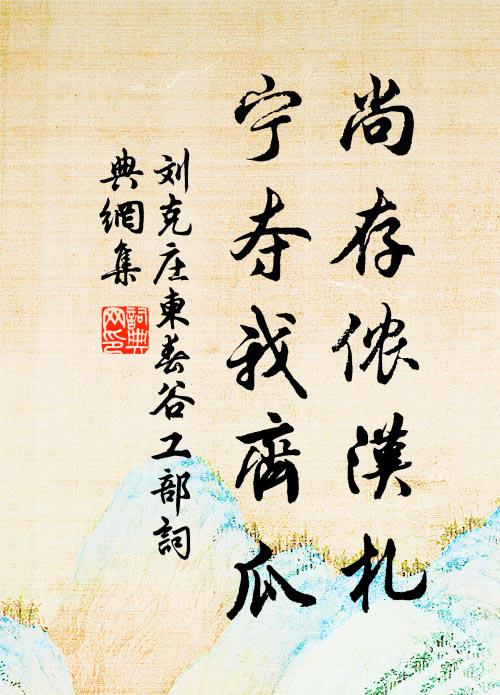 尚存侬漢札
宁夺我齊瓜
刘克庄東春谷工部詞
典網集
詞典
网印